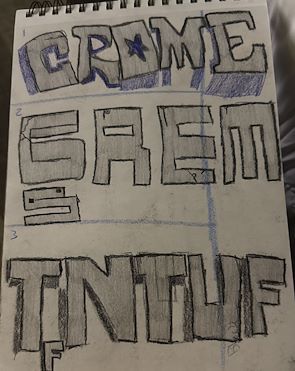 1
CROME
2
GREM
S
3
TNTUF
F